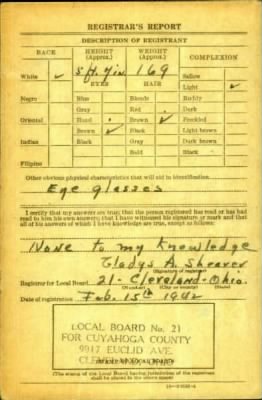 REGISTRAR'S REPORT
DESCRIPTION OF REGISTRANT
RACE HEIGHT (Approx.) WEIGHT (Approx.) COMPLEXION
5 ft. 7 in. 169
White ✓ EYES HAIR Sallow
Light ✓
Negro Blue Blonde Ruddy
Gray Red Dark
Oriental Hazel Brown ✓ Freckled
Brown ✓ Black Light brown
Indian Black Gray Dark brown
Bald Black
Filipino
Other obvious physical characteristics that will aid in identification
Eye glasses
I certify that my answers are true; that the person registered has read or has had
read to him his own answers; that I have witnessed his signature or mark and that
all of his answers of which I have knowledge are true, except as follows:
None to my Knowledge
Gladys A. Shearer
(Signature of registrar)
Registrar for Local Board 21 - Cleveland - Ohio.
(Number) (City or county) (State)
Date of registration Feb. 15th 1942
LOCAL BOARD No. 21
FOR CUYAHOGA COUNTY
9917 EUCLID AVE.
CLEVELAND, OHIO
(The stamp of the Local Board having jurisdiction of the registrant
shall be placed in the above space.)